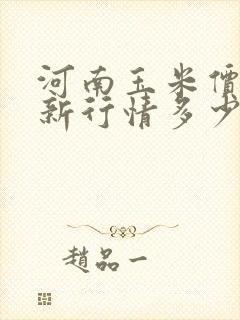 河南玉米價
新行情多少
趙品一